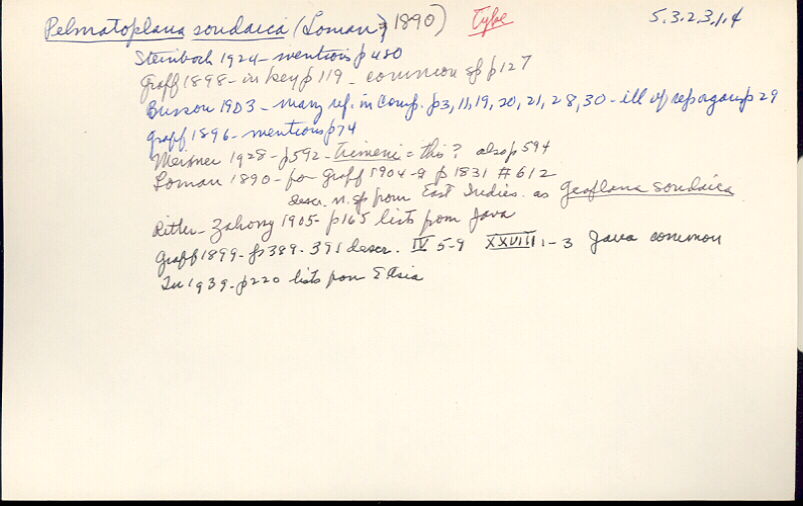 Pelmatoplana sondaica (Loman, 1890) Type 5.3.2.3.1.4
Steinboch 1924 - mentions p 480
Graff 1898 - in key p 119 - common sp p 127
Busson 1903 - many ref. in Comp. p 3, 11, 19, 20, 21, 28, 30 - ill of rep organs p 29
Graff 1896 - mentions p 74
Meixner 1928 - p 592 - trimeni = this? also p 594
Loman 1890 - for Graff 1904-8 p 1831 # 612
descr. n. sp from East Indies. as Geoplana sondaica
Ritter-Zahony 1905 - p 165 lists from Java
Graff 1899 - p 389 - 391 descr. IV 5-9 XXVIII 1-3 Java common
1939 - p 220 lists from E Asia